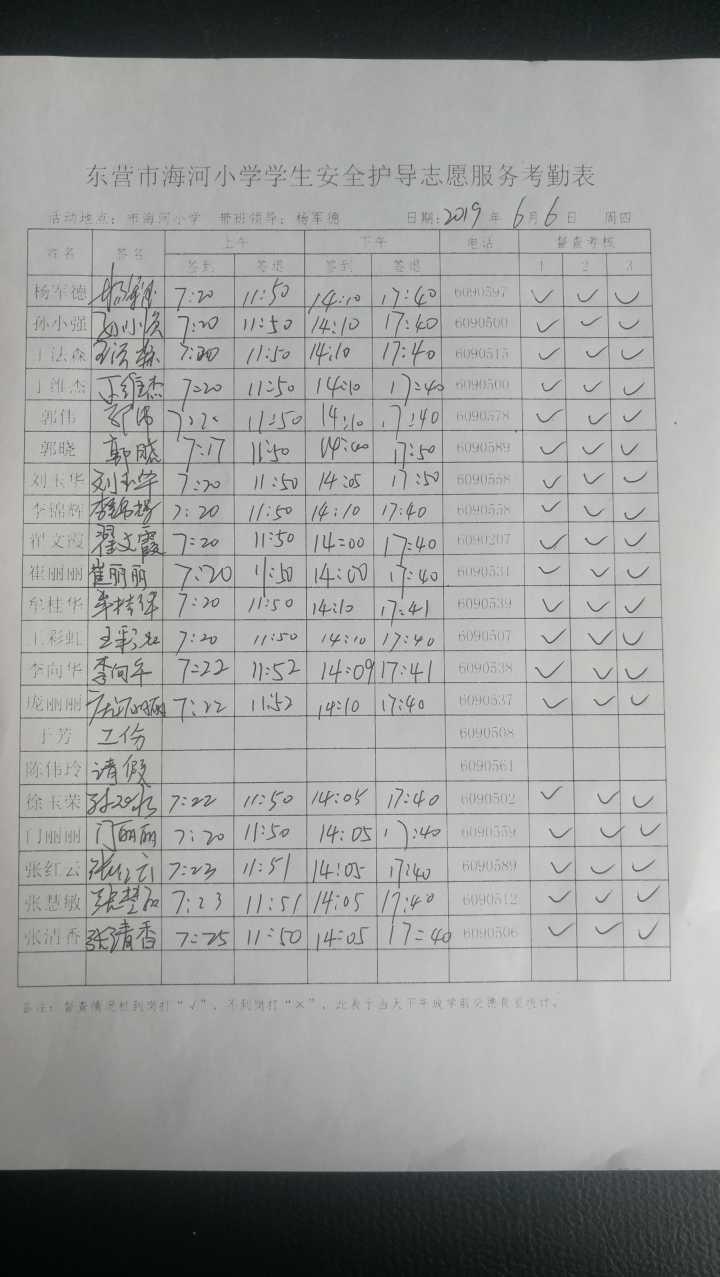 东营市海河小学学生安全护导志愿服务考勤表
活动地点：市海河小学 带班领导：杨军德 日期：2019 年 6 月 6 日 周四
姓名 签名 上午 下午 电话 督查考核
签到 签退 签到 签退 1 2 3
杨军德 7:20 11:50 14:10 17:40 6090597 ✓ ✓ ✓
孙小强 孙小强 7:20 11:50 14:10 17:40 6090500 ✓ ✓ ✓
丁法森 11:50 14:10 17:40 6090515 ✓ ✓ ✓
丁维杰 丁维杰 7:20 11:50 14:10 17:40 6090500 ✓ ✓ ✓
郭伟 郭伟 11:50 14:10 17:40 6090578 ✓ ✓ ✓
郭晓 郭晓 7:17 11:50 17:50 6090589 ✓ ✓ ✓
刘玉华 刘玉华 7:20 11:50 14:05 17:50 6090558 ✓ ✓ ✓
李锦辉 李锦辉 7:20 11:50 14:10 17:40 6090558 ✓ ✓ ✓
翟文霞 翟文霞 7:20 11:50 14:00 17:40 6090207 ✓ ✓ ✓
崔丽丽 崔丽丽 7:20 11:50 14:00 17:40 6090531 ✓ ✓ ✓
牟桂华 牟桂华 7:20 11:50 14:10 17:41 6090539 ✓ ✓ ✓
王彩虹 王彩虹 7:20 11:50 14:10 17:40 6090507 ✓ ✓ ✓
李向华 李向华 7:22 11:52 14:09 17:41 6090538 ✓ ✓ ✓
庞丽丽 庞丽丽 7:22 11:52 14:10 17:40 6090537 ✓ ✓ ✓
于芳 工份 6090508
陈伟玲 请假 6090561
徐玉荣 7:22 11:50 14:05 17:40 6090502 ✓ ✓ ✓
门丽丽 门丽丽 7:20 11:50 14:05 17:40 6090559 ✓ ✓ ✓
张红云 张红云 7:23 11:51 14:05 17:40 6090589 ✓ ✓ ✓
张慧敏 张慧敏 7:23 11:51 14:05 17:40 6090512 ✓ ✓ ✓
张清香 张清香 7:25 11:50 14:05 17:40 6090506 ✓ ✓ ✓
备注：督查情况栏到岗打“√”，不到岗打“×”，此表于当天下午放学前交德育室统计。